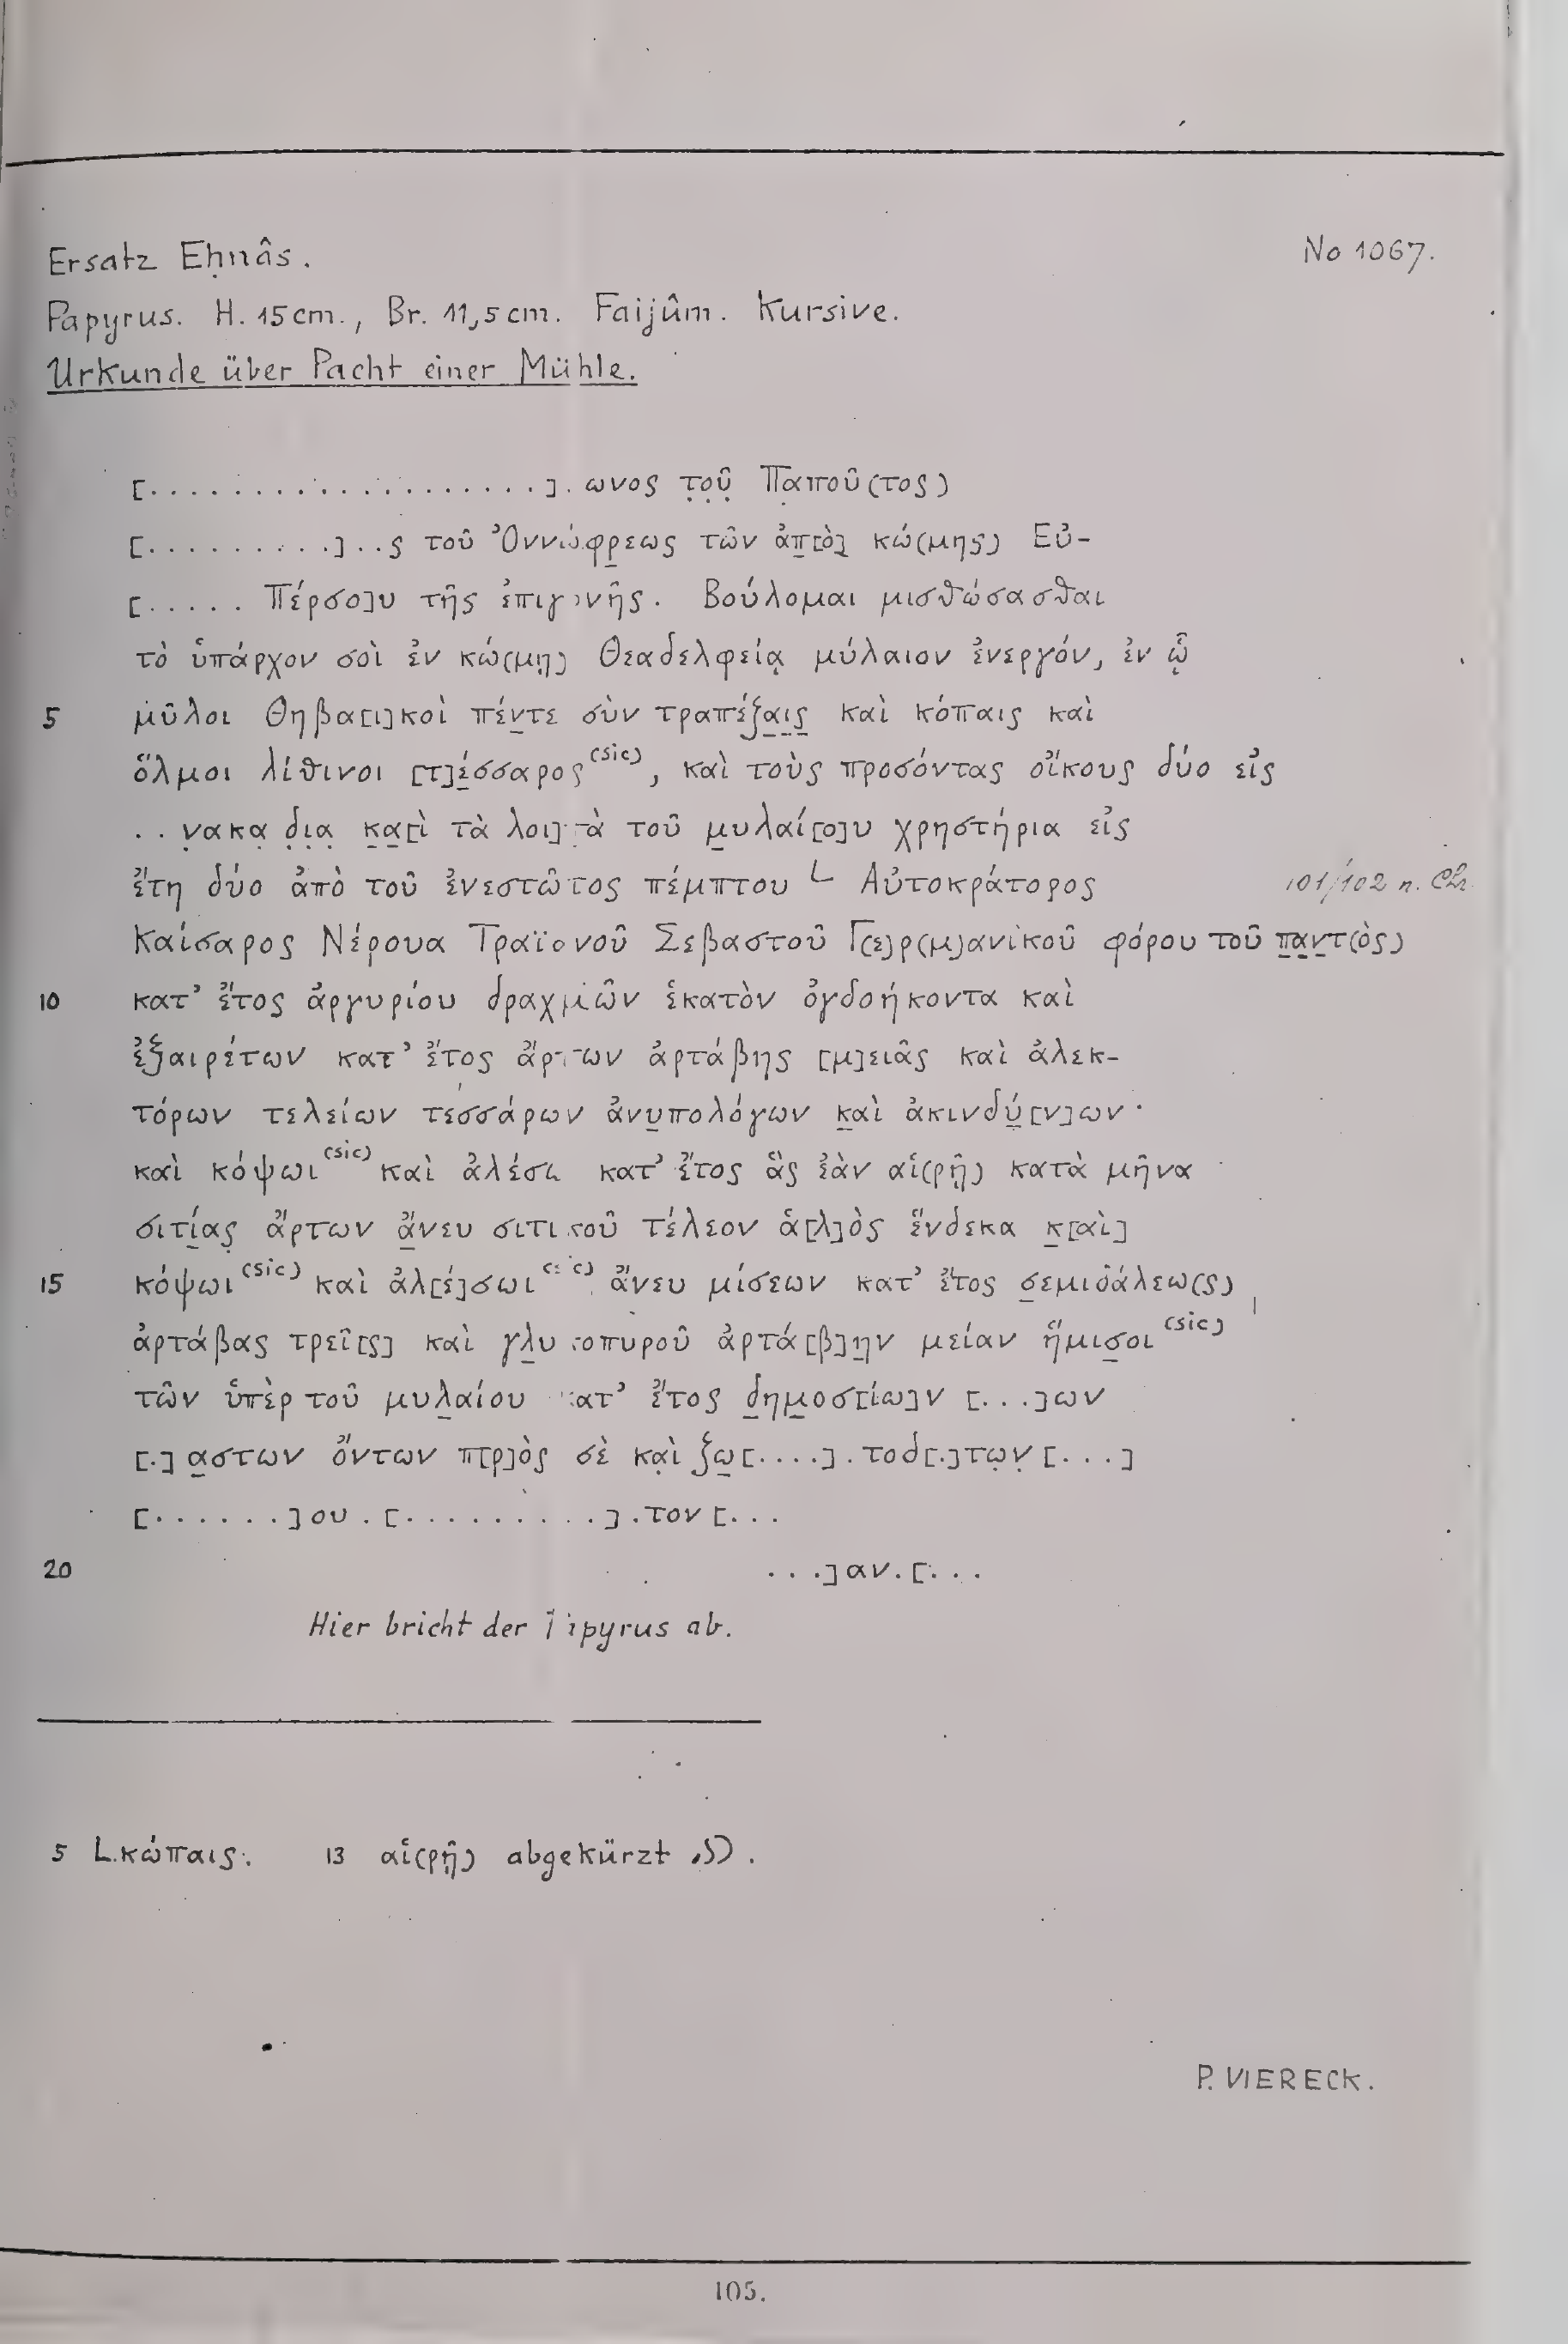 Ersatz Eḥnâs.
No 1067.
Papyrus. H. 15 cm., Br. 11,5 cm. Faijûm. Kursive.
Urkunde über Pacht einer Mühle.
[...................]. ωνος τ̣ο̣ῦ̣ Παποῦ(τος)
[.........]..ς τοῦ Ὀννώφρ̣εως τῶν ἀπ̣[ὸ] κώ(μης) Εὐ-
[..... Πέρσο]υ τῆς ἐπιγονῆς. Βούλομαι μισθώσασθαι
τὸ ὑπάρχον σοὶ ἐν κώ(μῃ) Θεαδελφείᾳ μύλαιον ἐνεργόν, ἐν ᾧ
5 μῦλοι Θηβα[ι]κοὶ πέν̣τε σὺν τραπέζ̣α̣ι̣ς̣ καὶ κόπαις καὶ
ὅλμοι λίθινοι [τ]έ̣σσαρος (sic), καὶ τοὺς προσόντας οἴκους δύο εἰς
..ν̣ακα̣ δ̣ι̣α̣ κ̣α̣[ὶ τὰ λοι]πὰ τοῦ μ̣υλαί[ο]υ χρηστήρια εἰς
ἔτη δύο ἀπὸ τοῦ ἐνεστῶτος πέμπτου L Αὐτοκράτορος
101/102 n. Chr.
Καίσαρος Νέρουα Τραϊανοῦ Σεβαστοῦ Γ(ε)ρ(μ)ανικοῦ φόρου τοῦ π̣α̣ν̣τ(ὸς)
10 κατ’ ἔτος ἀργυρίου δραχμῶν ἑκατὸν ὀγδοήκοντα καὶ
ἐξαιρέτων κατ’ ἔτος ἄρτων ἀρτάβης [μ]ειᾶς καὶ ἀλεκ-
τόρων τελείων τεσσάρων ἀνυ̣πολόγων κ̣αὶ ἀκινδύ̣[ν]ων·
καὶ κόψωι (sic) καὶ ἀλέσω κατ’ ἔτος ἃς ἐὰν αἱ(ρῇ) κατὰ μῆνα
σιτί̣ας̣ ἄρτων ἄ̣νευ σιτικοῦ τέλεον ἁ[λ]ὸς ἕνδεκα κ̣[αὶ]
15 κόψωι (sic) καὶ ἀλ[έ]σωι (sic) ἄνευ μίσεων κατ’ ἔτος σ̣εμιδάλεω(ς)
ἀρτάβας τρεῖ[ς] καὶ γλ̣υκοπυροῦ ἀρτά[β]η̣ν μείαν ἥμισ̣οι (sic)
τῶν ὑπὲρ τοῦ μυλ̣αίου κατ’ ἔτος δ̣ημ̣οσ[ίω]ν [...]ων
[.] α̣στων ὄντων π[ρ]ὸς σὲ κα̣ὶ ζω̣[....]. τοδ[.]τω̣ν̣ [...]
[......]ου . [.........]. τον [...
20 ...]αν. [...
Hier bricht der Papyrus ab.
5 L. κώπαις. 13 αἱ(ρῇ) abgekürzt .
P. VIERECK.
105.